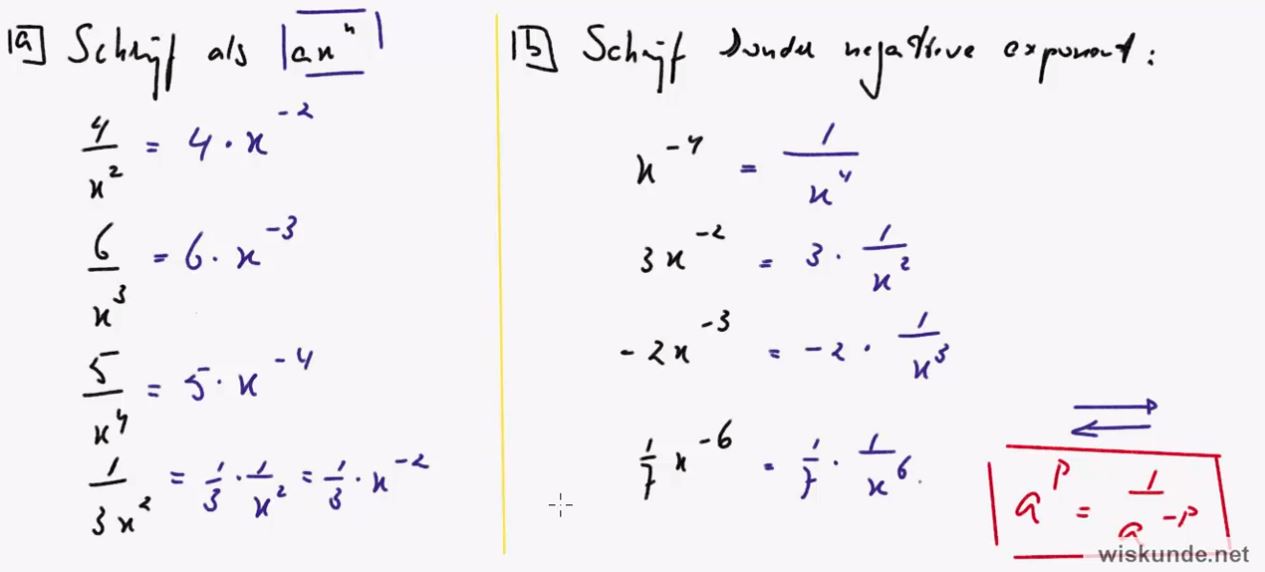 1a Schrijf als axⁿ
4/x² = 4 · x⁻²
6/x³ = 6 · x⁻³
5/x⁴ = 5 · x⁻⁴
1/3x² = 1/3 · 1/x² = 1/3 · x⁻²
1b Schrijf zonder negatieve exponent:
x⁻⁴ = 1/x⁴
3x⁻² = 3 · 1/x²
-2x⁻³ = -2 · 1/x³
1/7 x⁻⁶ = 1/7 · 1/x⁶.
aᵖ = 1/a⁻ᵖ
wiskunde.net